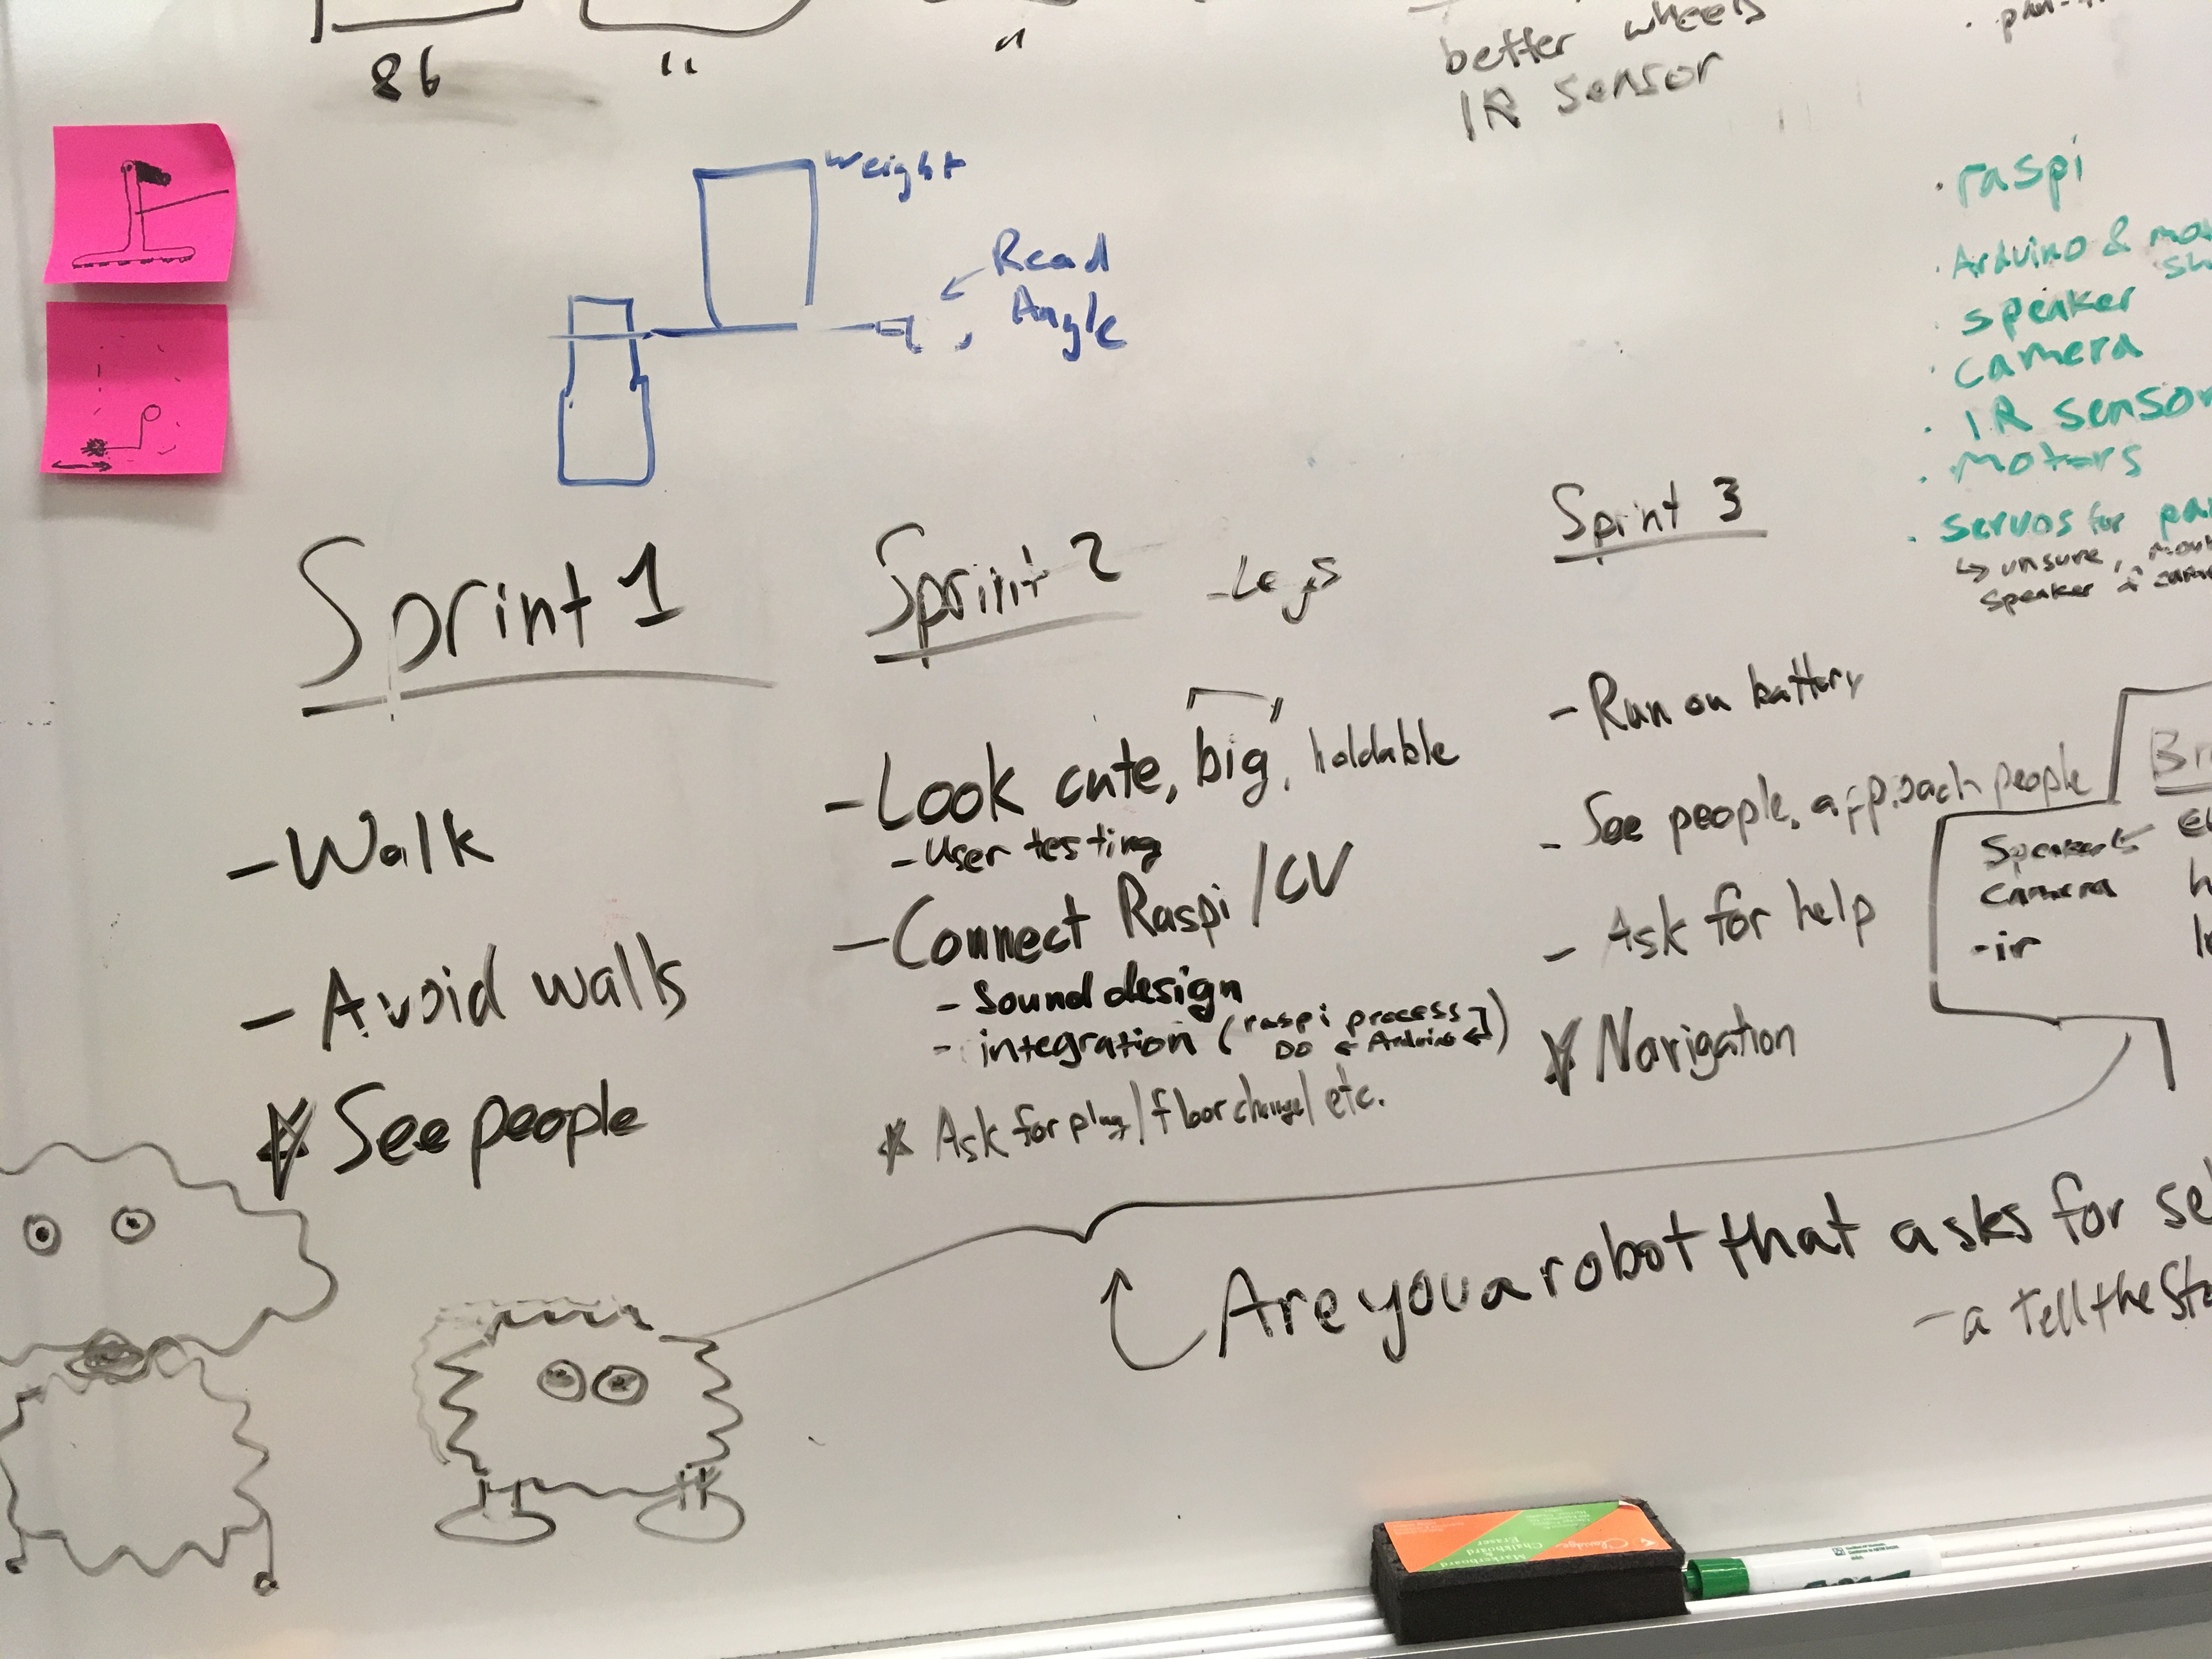 86
"
"
better wheels
IR sensor
weight
Read
Angle
· raspi
· Arduino &
· speaker
· camera
· IR sensor
· motors
· servos for
↳ unsure,
speaker +
Sprint 1
- Walk
- Avoid walls
* See people
Sprint 2
- Legs
- Look cute, big, holdable
- User testing
- Connect Raspi / CV
- Sound design
- integration (raspi process
DO ← Arduino ↵)
* Ask for plug / floor change / etc.
Sprint 3
- Run on battery
- See people, approach people
- Ask for help
* Navigation
Speaker ←
camera
- ir
Are you a robot that asks for
- a Tell the
Claridge
Markerboard
&
Chalkboard
Eraser